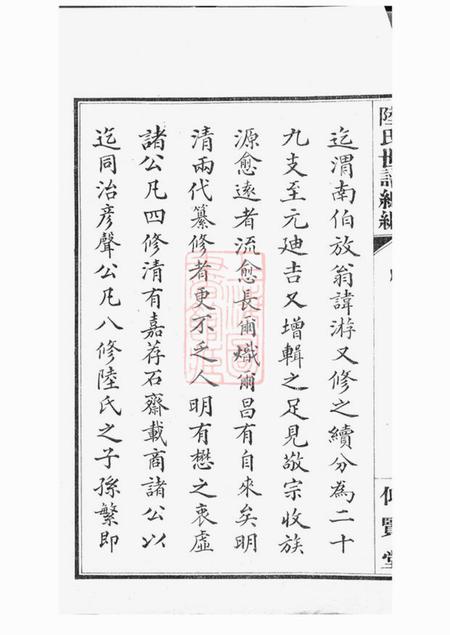 陸氏世譜續編
賢堂
迄渭南伯放翁諱游又修之續分為二十
九支至元廸吉又增輯之足見敬宗收族
源愈遠者流愈長爾熾爾昌有自來矣明
清兩代纂修者更不乏人明有懋之衷虛
諸公凡四修清有嘉荐石齋載商諸公以
迄同治彥聲公凡八修陸氏之子孫繁即